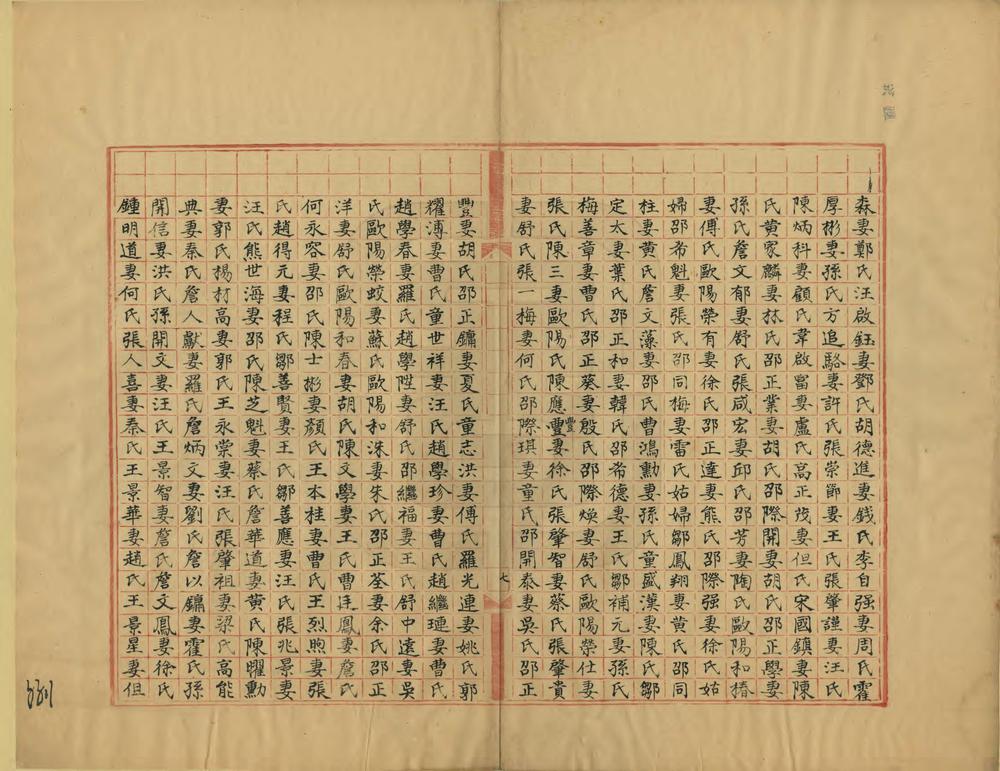 森妻鄭氏汪啟鈺妻鄧氏胡德進妻錢氏李自强妻周氏霍
厚彬妻孫氏方追駱妻許氏張崇節妻王氏張肇謹妻汪氏
陳炳科妻顧氏韋啟富妻盧氏高正茂妻但氏宋國鎮妻陳
氏黃家麟妻林氏邵正業妻胡氏邵際開妻胡氏邵正學妻
孫氏詹文郁妻舒氏張咸宏妻邱氏邵芳妻陶氏歐陽和椿
妻傅氏歐陽榮有妻徐氏邵正達妻熊氏邵際强妻徐氏姑
婦邵希魁妻張氏邵同梅妻雷氏姑婦鄒鳳翔妻黃氏邵同
柱妻黃氏詹文藻妻邵氏曹鴻勳妻孫氏童盛漢妻陳氏鄒
定太妻葉氏邵正和妻韓氏邵希德妻王氏鄒補元妻孫氏
梅善章妻曹氏邵正葵妻殷氏邵際煥妻舒氏歐陽榮仕妻
張氏陳三妻歐陽氏陳應豐妻徐氏張肇智妻蔡氏張肇貴
妻舒氏張一梅妻何氏邵際琪妻童氏邵開泰妻吳氏邵正
七
豐妻胡氏邵正鏞妻夏氏童志洪妻傅氏羅光連妻姚氏郭
耀溥妻曹氏童世祥妻汪氏趙學珍妻曹氏趙繼璉妻曹氏
趙學春妻羅氏趙學陞妻舒氏邵繼福妻王氏舒中遠妻吳
氏歐陽榮蛟妻蘇氏歐陽和洙妻朱氏邵正荃妻余氏邵正
洋妻舒氏歐陽和春妻胡氏陳文學妻王氏曹廷鳳妻詹氏
何永容妻邵氏陳士彬妻顏氏王本桂妻曹氏王烈煦妻張
氏趙得元妻程氏鄒善賢妻王氏鄒善應妻汪氏張兆景妻
汪氏熊世海妻邵氏陳芝魁妻蔡氏詹華道妻黃氏陳曜勳
妻郭氏楊材高妻郭氏王永棠妻汪氏張肇祖妻梁氏高能
典妻秦氏詹人獻妻羅氏詹炳文妻劉氏詹以鏞妻霍氏孫
開信妻洪氏孫開文妻汪氏王景智妻詹氏詹文鳳妻徐氏
鍾明道妻何氏張人喜妻秦氏王景華妻趙氏王景星妻但